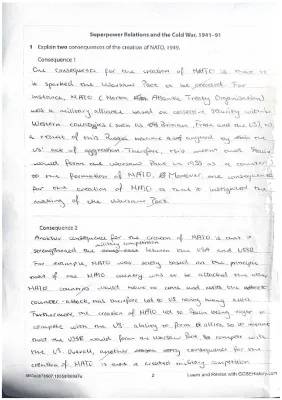 Superpower Relations and the Cold War, 1941–91
1 Explain two consequences of the creation of NATO, 1949.
Consequence 1
One consequence for the creation of NATO is that it
is sparked the Warsaw Pact to be created. For
instance, NATO (North Atlantic Treaty Organization)
was a military alliance based on collective security within
Western countries (such as Britain, France and the US). As
a result of this Russia angered by the
US' act of aggression. Therefore, this meant that Russia
would form the Warsaw Pact in 1955 as a counter
to the formation of NATO. Moreover, one consequence
for the creation of NATO is that it instigated the
making of the Warsaw Pact.
Consequence 2
Another consequence for the creation of NATO is that it
military competition
strengthened the between the USA and USSR.
For example, NATO was solely based on the principle
that if one NATO country was to be attacked the other
NATO countries would have to come and
counter-attack, this therefore led to US having many allies.
Furthermore, the creation of NATO led to being eager to
compete with the US' ability to form allies, so it meant
that the USSR would form the Warsaw Pact to compete with
the US. Overall, another consequence for the
creation of NATO is it created military competition
2
Learn and Revise with GCSEHistory.com